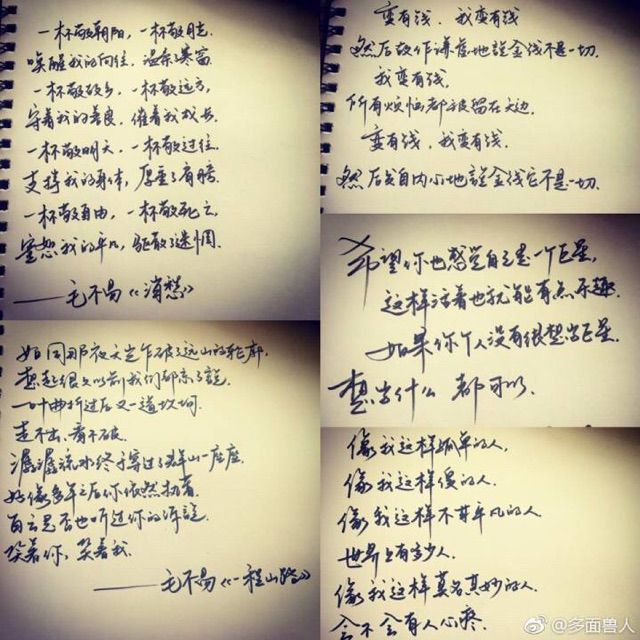 一杯敬朝阳，一杯敬月光
唤醒我的向往，温柔了寒窗
一杯敬故乡，一杯敬远方
守着我的善良，催着我成长
一杯敬明天，一杯敬过往
支撑我的身体，厚重了肩膀
一杯敬自由，一杯敬死亡
宽恕我的平凡，驱散了迷惘
——毛不易《消愁》
如同那夜天光乍破了远山的轮廓，
想起很久以前我们都忘了说，
一叶曲折过后又一道坎坷
走不出，看不破
潺潺流水终于穿过了群山一座座
好像多年之后你依然执着
白云是否也听过你的诉说
笑着你，笑着我
——毛不易《一程山路》
变有钱，我变有钱
然后故作谦虚地说金钱不是一切
我变有钱
所有烦恼都被留在天边
变有钱，我变有钱
然后发自内心地说金钱它不是一切
希望你也感觉自己是一个巨星，
这样活着也就能有点乐趣
如果你个人没有很想当巨星
想当什么都可以
像我这样孤单的人，
像我这样傻的人
像我这样不甘平凡的人
世界上有多少人
像我这样莫名其妙的人
会不会有人心疼
@多面兽人